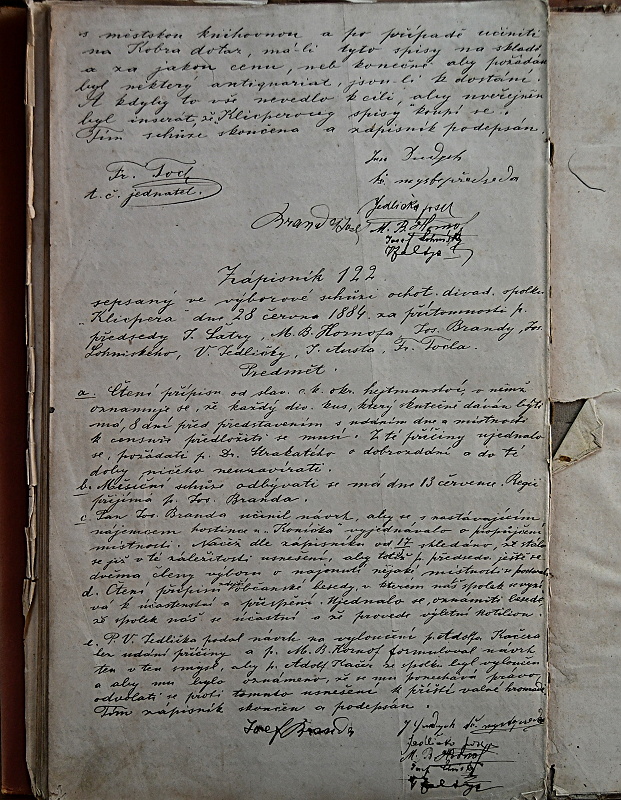 s městskou knihovnou a po případě učiniti
na Kobra dotaz, má-li tyto spisy na skladě
a za jakou cenu, neb konečně aby požádán
byl některý antiquariat, jsou-li k dostání.
A kdyby to vše nevedlo k cíli, aby uveřejněn
byl inserat, že „Klicperovy spisy" koupí se.
Tím schůze skončena a zápisník podepsán.
Jos. Dudych
Fr. Tocl
t. č. jednatel.
tč. místopředseda
Jedlička Josef
Brand Josef
M. B. Hornof
Josef Lohniský
Zápisník 122
sepsaný ve výborové schůzi ochot. divad. spolku
„Klicpera" dne 28 června 1884 za přítomnosti p.
předsedy J. Šatry, M. B. Hornofa, Jos. Brandy, Jos.
Lohniského, V. Jedličky, J. Austa, Fr. Tocla.
Předmět.
a. Čtení přípisu od slav. c. k. okr. hejtmanství, v němž
oznamuje se, že každý div. kus, který skutečně dáván býti
má, 8 dní před představením s udáním dne a místnosti
k censuře předložiti se musí. Z té příčiny ujednalo
se, požádati p. Dr. Strakatého o dobrozdání a do té
doby ničeho neuzavírati.
b. Měsíční schůze odbývati se má dne 13 července. Regii
přijímá p. Jos. Branda.
c. Pan Jos. Branda učinil návrh, aby se s nastávajícím
nájemcem hostince u „Koníčka" vyjednávalo o propůjčení
místnosti. Načež dle zápisníku od 17 shledáno, že stalo
se již v té záležitosti usnešení, aby totiž p. předseda ještě se
dvěma členy výboru o najmutí nějaké místnosti se
d. Čtení přípisu Občanské besedy, v kterém náš spolek se vyzý
vá k účastenství a přispění. Ujednalo se, oznámiti besedě,
že spolek náš se účastní a že provede výletní kotilion.
e. P. V. Jedlička podal návrh na vyloučení p. Adolfa Kačera
bez udání příčiny a p. M. B. Hornof formuloval návrh
ten v ten smysl, aby p. Adolf Kačer ze spolku byl vyloučen
a aby mu bylo oznámeno, že se mu ponechává právo
odvolati se proti tomuto usnešení k příští valné hromadě.
Tím zápisník skončen a podepsán.
Josef Branda
J Dudych tč.
Jedlička Josef
M. B. Hornof
Josef Lohniský